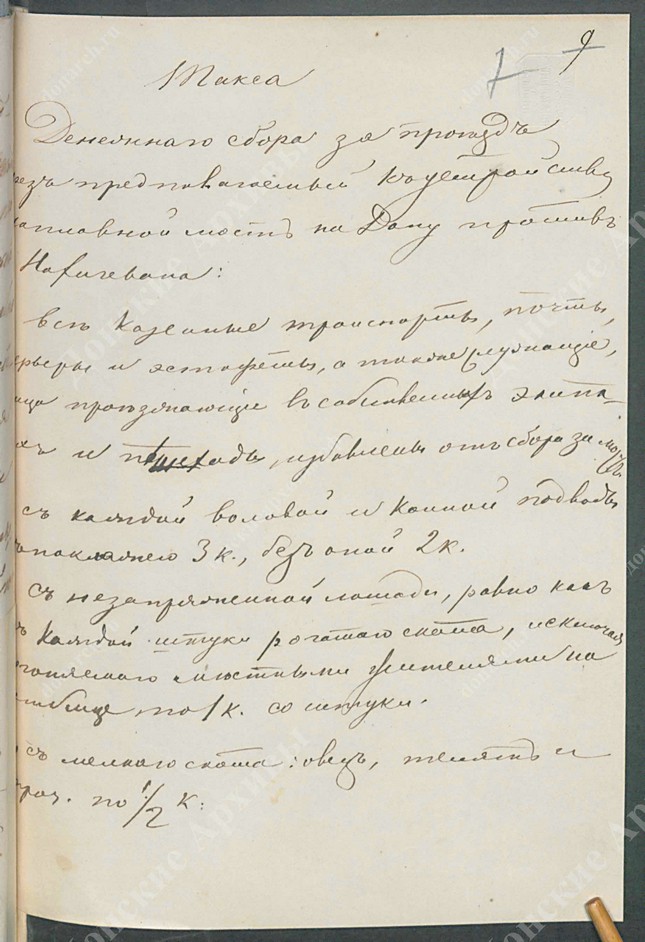 9
Такса
Денежнаго сбора за проездъ
резъ предполагаемый къ устройству
наплавной мостъ на Дону противъ
Нахичевана:
всѣ казенные транспорты, почты,
рьеры и эстафеты, а также служащіе,
ица проезжающіе въ собственныхъ экипа-
ахъ и пѣшеходы, избавлены отъ сбора за мостъ
съ каждой воловой и конной подводы
ъ поклажею 3 к., безъ оной 2 к.
съ незапряженной лошади, равно какъ
ъ каждой штуки рогатаго скота, исключая
гоняемаго мѣстными жителями на
стбище по 1 к. со штуки.
съ мелкаго скота: овецъ, телятъ и
проч. по 1/2 к: